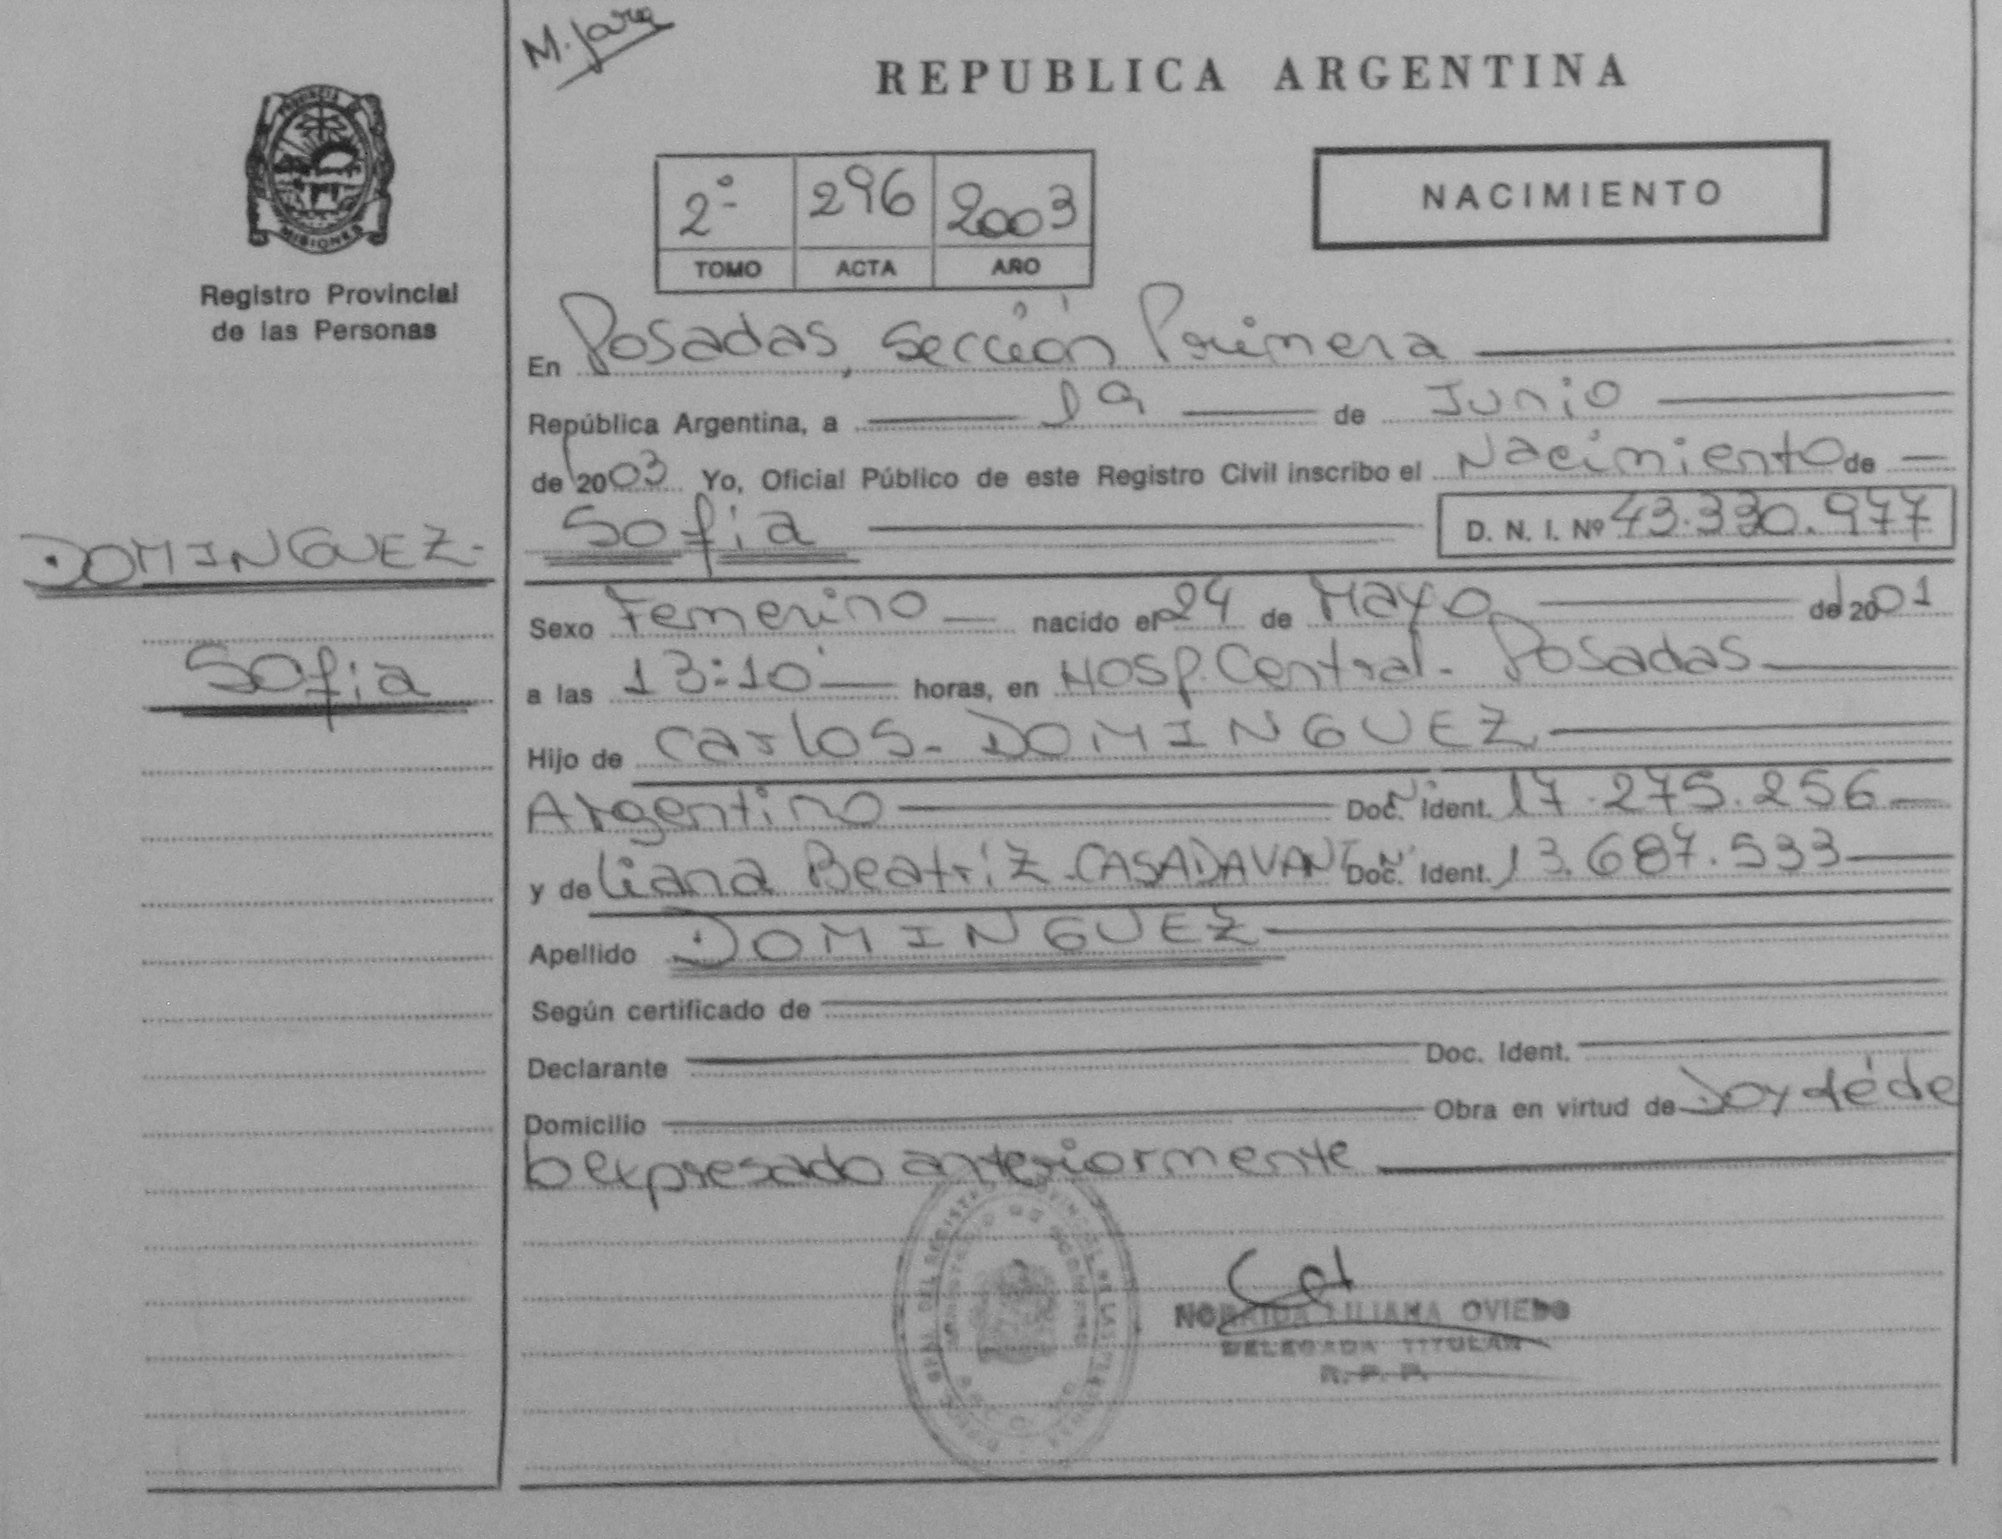 M. Jara
REPUBLICA ARGENTINA
PROVINCIA DE
MISIONES
Registro Provincial
de las Personas
2º 296 2003
TOMO ACTA AÑO
NACIMIENTO
En Posadas, Sección Primera
República Argentina, a de Junio
de 2003 Yo, Oficial Público de este Registro Civil inscribo el Nacimiento de
Sofia D. N. I. Nº 43.330.977
DOMINGUEZ-
Sofia
Sexo Femenino nacido el 24 de Mayo de 2001
a las 13:10 horas, en Hosp. Central - Posadas
Hijo de Carlos - DOMINGUEZ
Argentino Doc. Ident. 17.275.256
y de liana Beatriz CASADAVANT Doc. Ident. 13.687.533
Apellido DOMINGUEZ
Según certificado de
Declarante Doc. Ident.
Domicilio Obra en virtud de Doy fé de
lo expresado anteriormente
LILIANA OVIEDO
DELEGADA TITULAR
R. P. P.